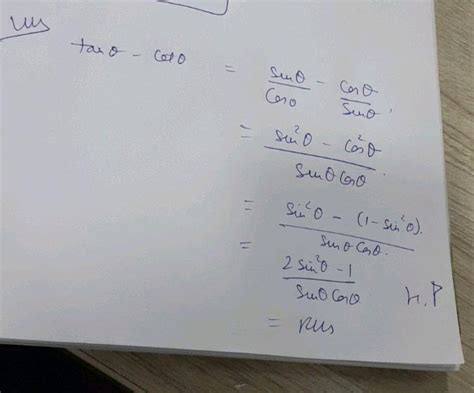 LHS
tanθ - cotθ = sinθ/cosθ - cosθ/sinθ.
= sin²θ - cos²θ / sinθ cosθ.
= sin²θ - (1 - sin²θ). / sinθ cosθ.
= 2 sin²θ - 1 / sinθ cosθ H.P
= RHS